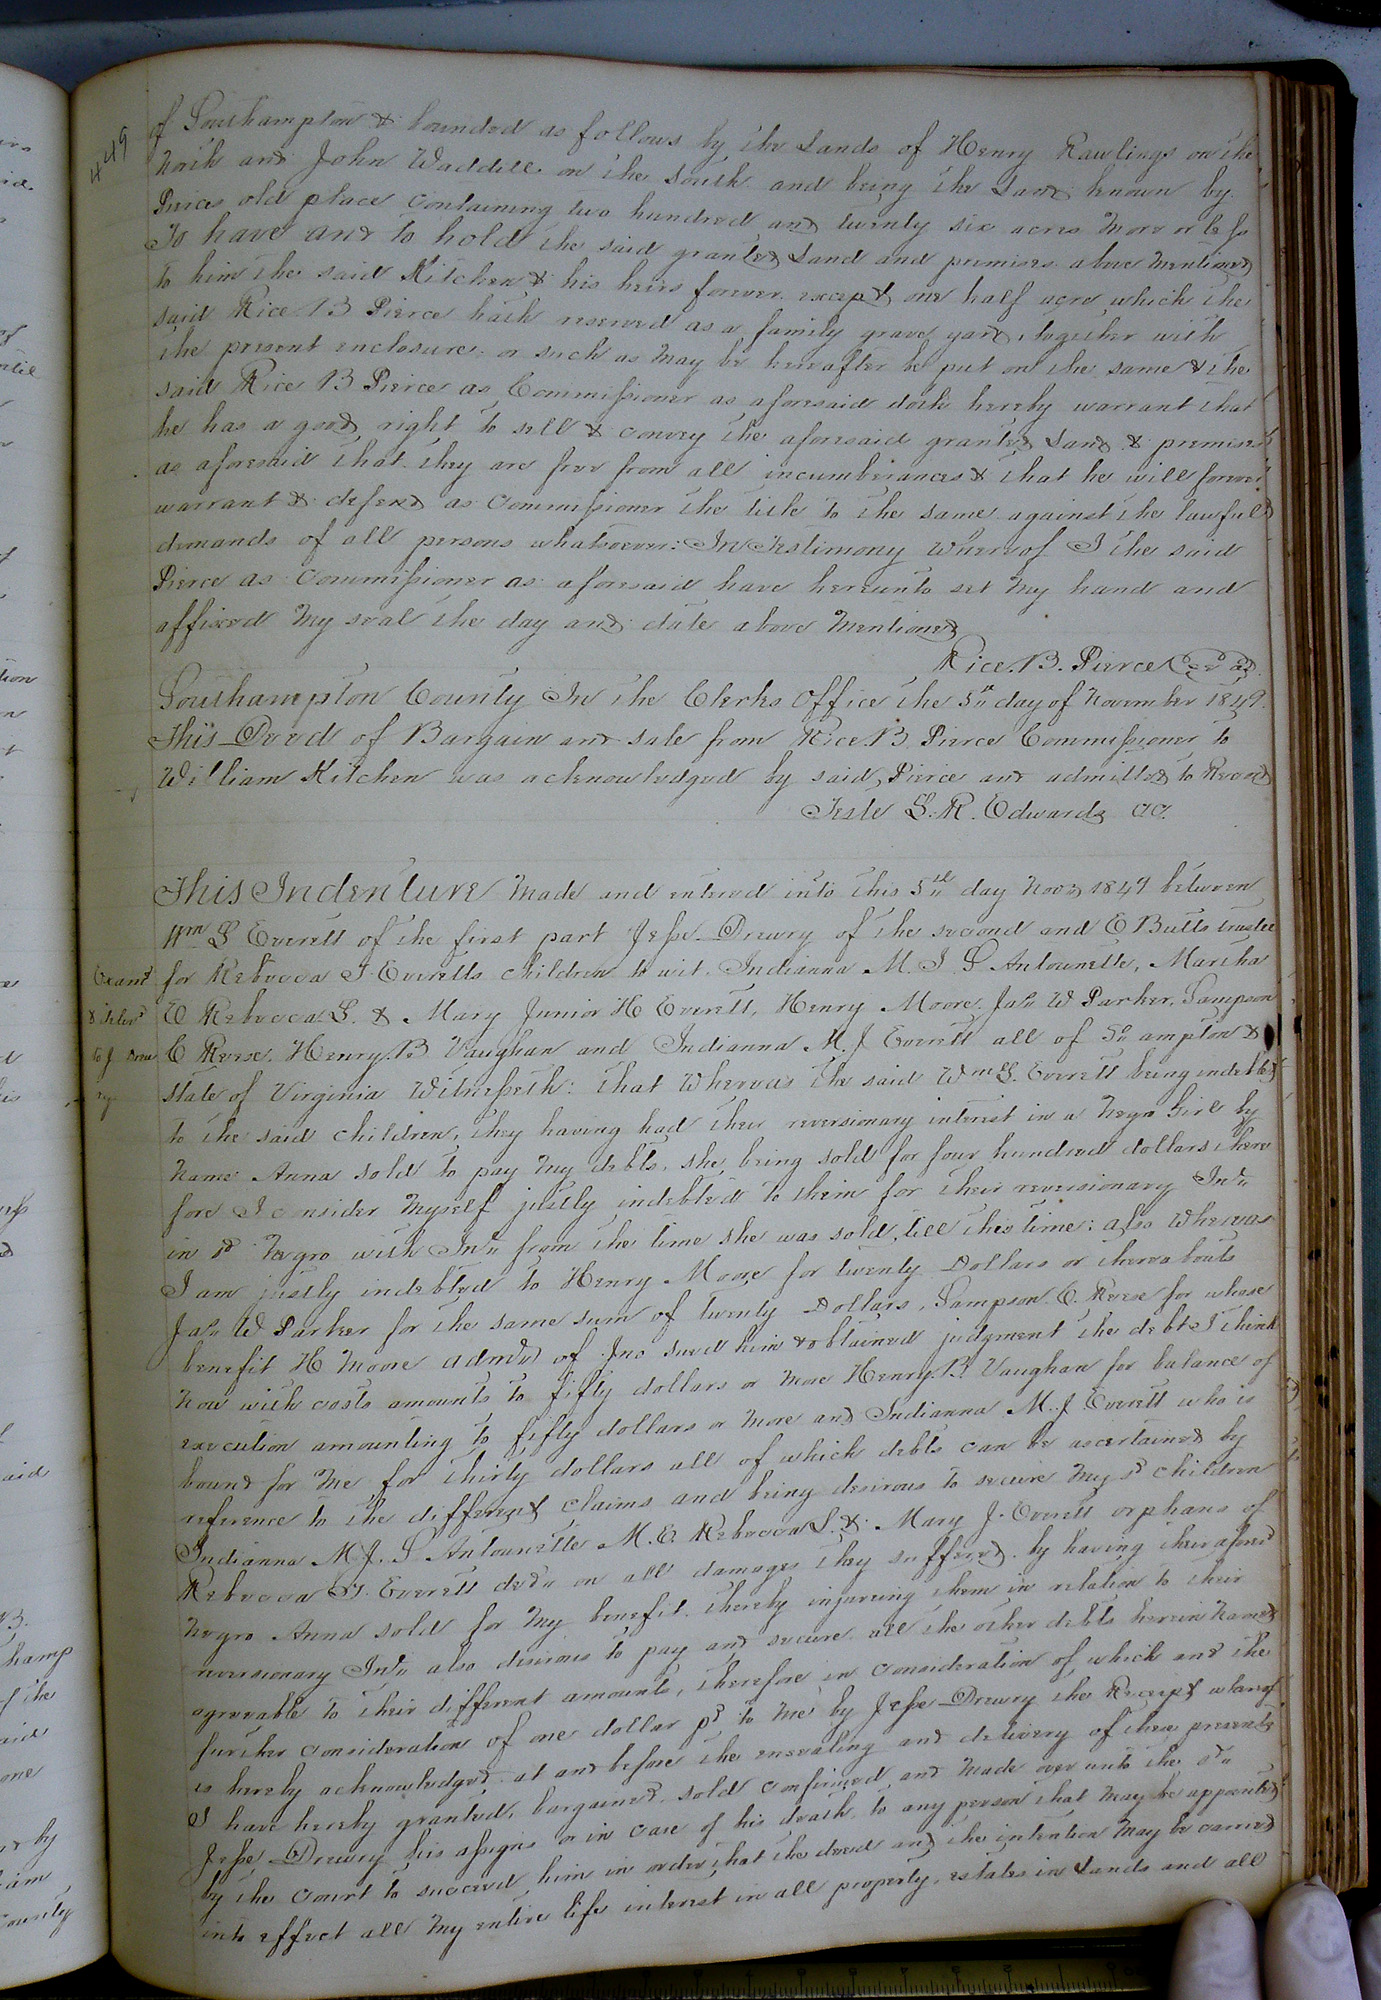 449
of Southampton & bounded as follows by the Lands of Henry Rawlings on the
North and John Waddill on the South and being the Land known by
Pierces old place containing two hundred and twenty six acres more or less
To have and to hold the said granted Land and premises above mentioned
to him the said Kitchen & his heirs forever except one half acre which the
said Rice B Pierce hath reserved as a family grave yard, together with
the present enclosure or such as may be hereafter be put on the same & the
said Rice B Pierce as Commissioner as aforesaid doth hereby warrant that
he has a good right to sell & convey the aforesaid granted Land & premises
as aforesaid that they are free from all incumberances & that he will forever
warrant & defend as Commissioner the title to the same against the lawful
demands of all persons whatsoever: In Testimony whereof I the said
Pierce as Commissioner as aforesaid have hereunto set my hand and
affixed my seal the day and date above mentioned
Rice. B. Pierce Seal
Southampton County In the Clerks Office the 5th day of November 1849.
This Deed of Bargain and sale from Rice. B. Pierce Commissioner to
William Kitchen was acknowledged by said Pierce and admitted to Record
Teste L. R. Edwards CC.
This Indenture made and entered into this 5th day Novr 1849 between
Wm S Everett of the first part Jesse Drewry of the second and E Butts trustee
for Rebecca T Everetts children to wit. Indianna M. J. S Antounette, Martha
E Rebecca S. & Mary Junior H Everett, Henry Moore, Jas W Parker, Sampson
C Reese, Henry B Vaughan and Indianna M. J Everett all of So ampton &
state of Virginia Witnesseth: that whereas the said Wm S. Everett being indebted
Examd
& delivd
to J Drew
ry
to the said children, they having had their reversionary interest in a Negro Girl by
name Anna sold to pay my debts, she being sold for four hundred dollars there
fore I consider myself justly indebted to them for their reversionary Int
in sd Negro with Int from the time she was sold, till this time: also whereas
I am justly indebted to Henry Moore for twenty Dollars or thereabouts
Jas W Parker for the same sum of twenty Dollars, Sampson. C. Reese for whose
benefit H Moore admr of Jno sued him & obtained judgment the debt I think
now with costs amounts to fifty dollars or more Henry. B. Vaughan for balance of
execution amounting to fifty dollars or more and Indianna M. J Everett who is
bound for me for thirty dollars all of which debts can be ascertained by
reference to the different claims and being desirous to secure my sd children
Indianna M. J. S Antounette M. E. Rebecca S. & Mary J. Everett orphans of
Rebecca T. Everett decd on all damages they suffered by having their aforsd
Negro Anna sold for my benefit thereby injureing them in relation to their
reversionary Int also desirous to pay and secure all the other debts herein named
agreeable to their different amounts, therefore in consideration of which and the
further consideration of one dollar pd to me by Jesse Drewry the Receipt whereof
is hereby acknowledged at and before the ensealing and delivery of these presents
I have hereby granted, bargained, sold confirmed and made over unto the sd
Jesse Drewry his assigns or in case of his death to any person that may be appointed
by the Court to succeed him in order that the deed and the intention may be carried
into effect all my entire life interest in all property, estates in Lands and all